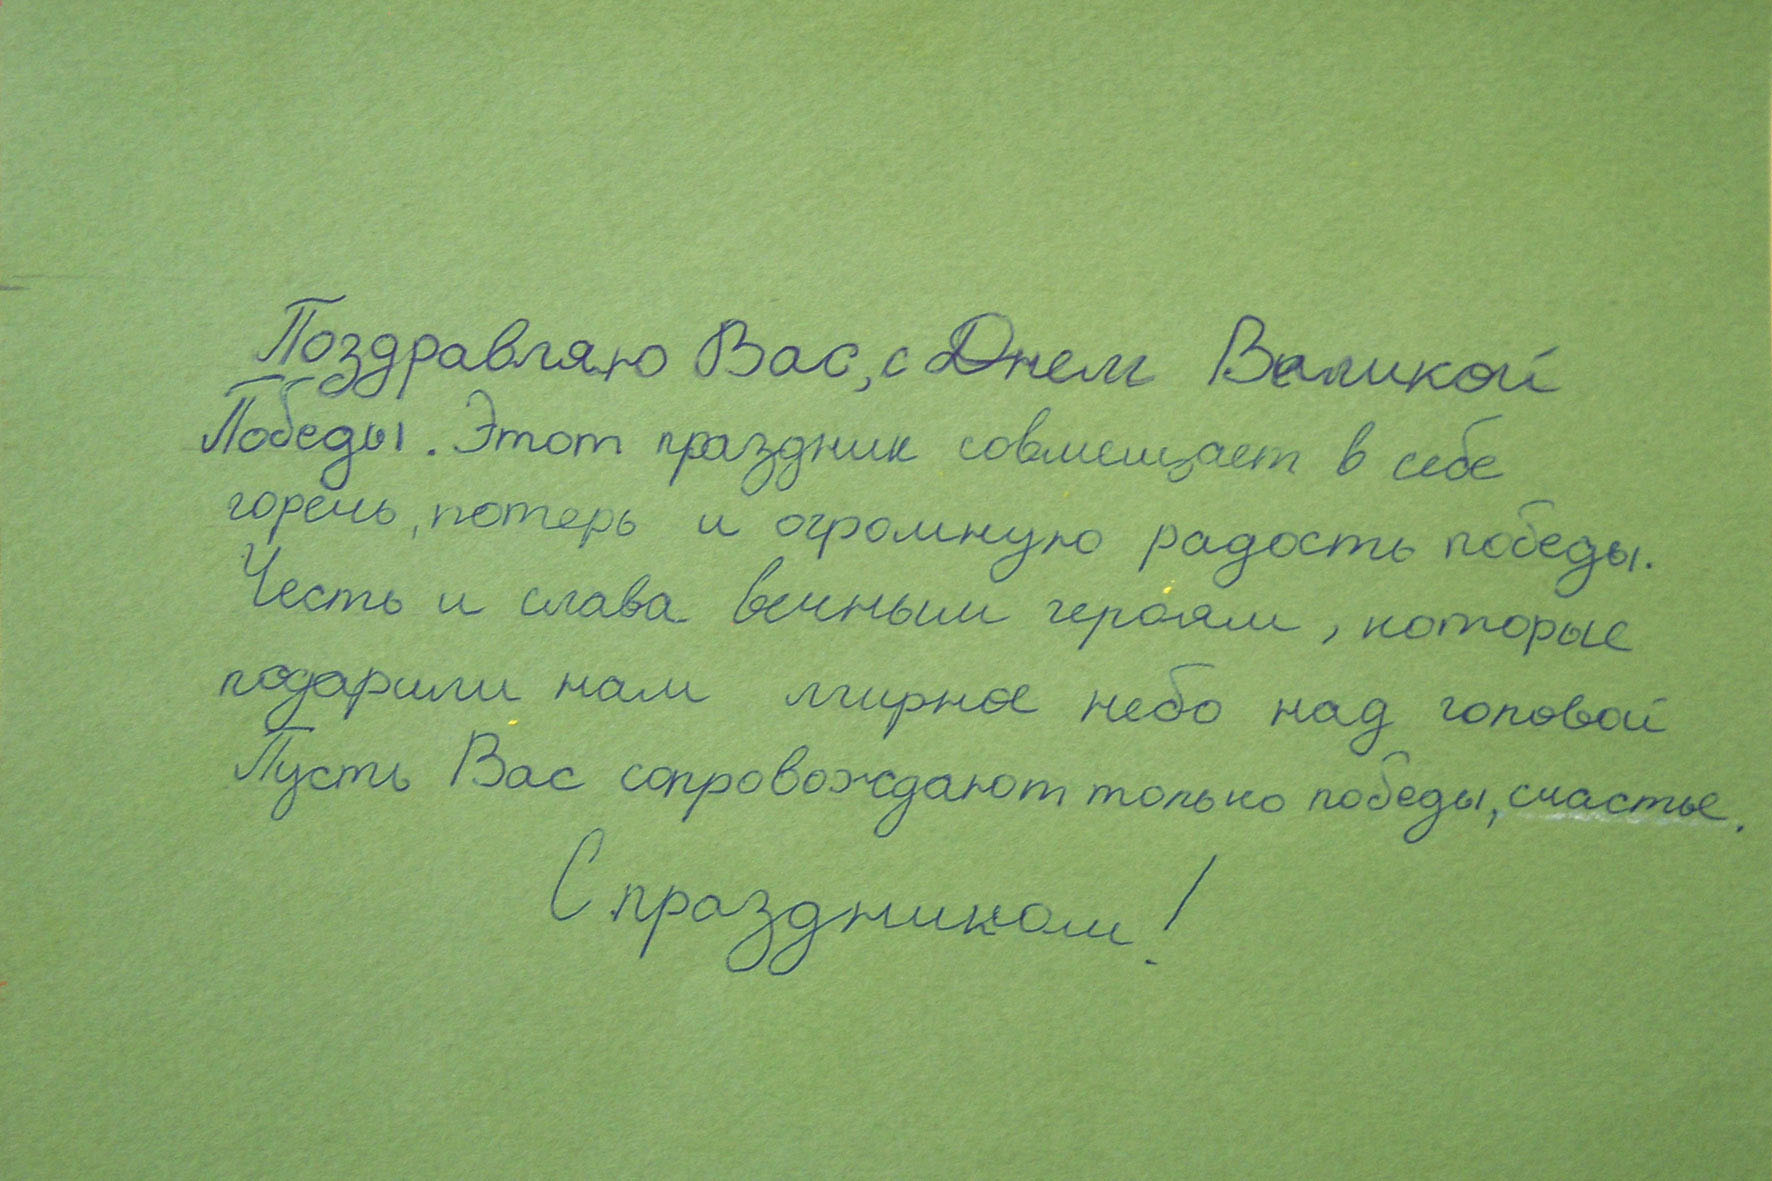 Поздравляю Вас, с Днем Великой
Победы. Этот праздник совмещает в себе
горечь, потерь и огромную радость победы.
Честь и слава вечным героям, которые
подарили нам мирное небо над головой
Пусть Вас сопровождают только победы, счастье.
С праздником!